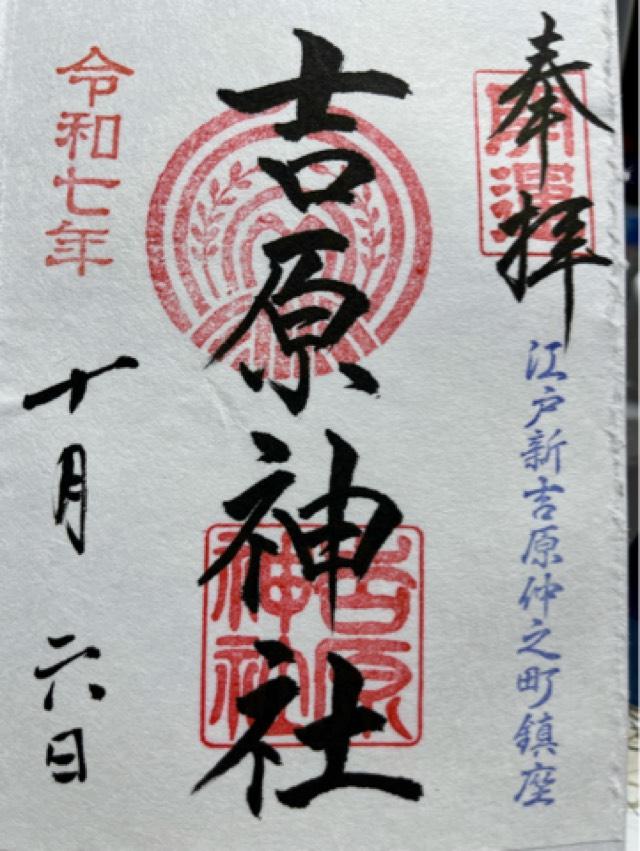 奉拝
開運
江戸新吉原仲之町鎮座
吉原神社
吉原神社
令和七年
十月 六日